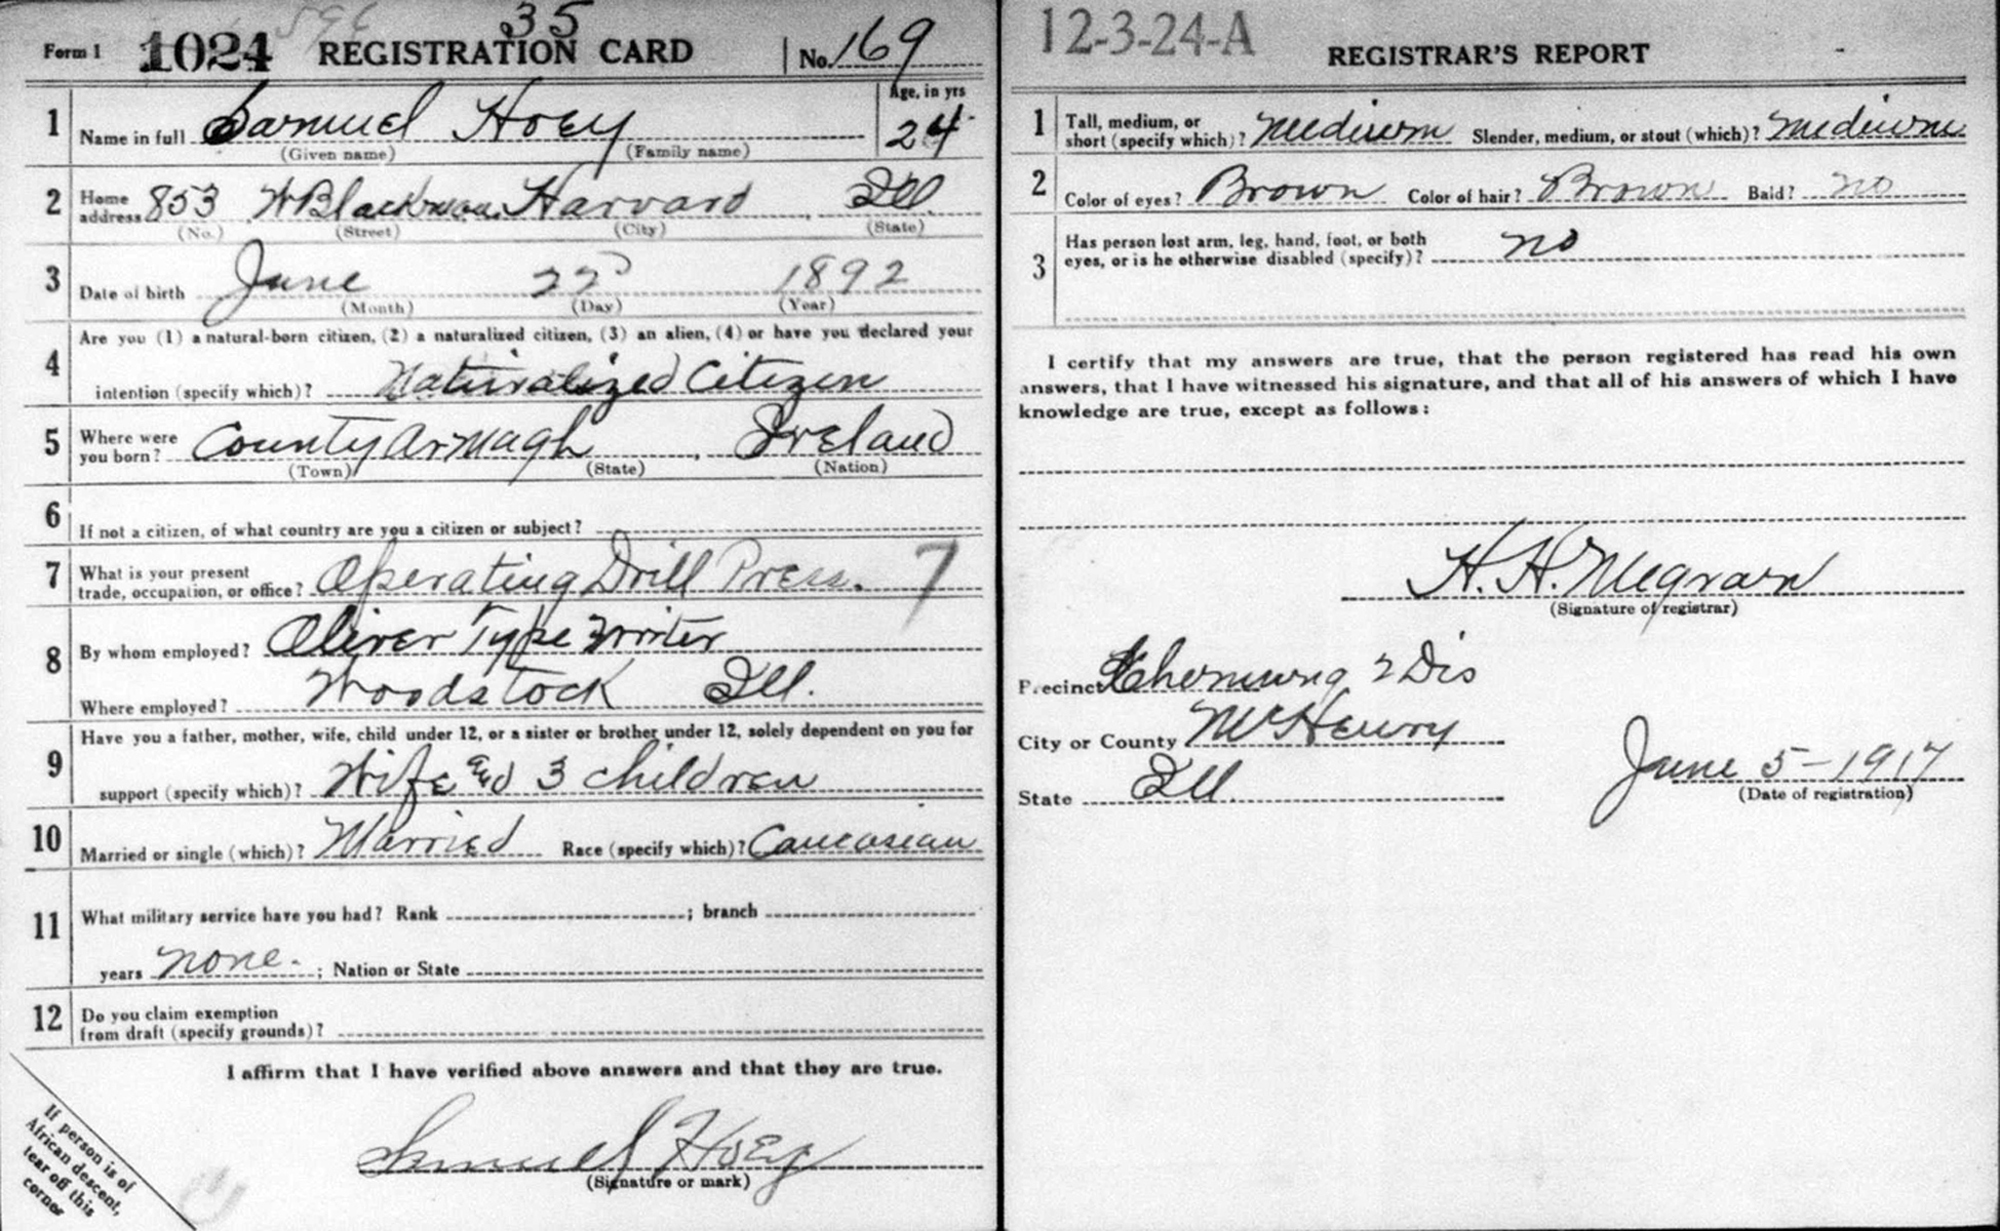 35
Form 1 1024 REGISTRATION CARD No. 169
1 Name in full Samuel Hoey Age, in yrs 24
(Given name) (Family name)
2 Home address 853 W Blackman Harvard Ill.
(No.) (Street) (City) (State)
3 Date of birth June 22 1892
(Month) (Day) (Year)
4 Are you (1) a natural-born citizen, (2) a naturalized citizen, (3) an alien, (4) or have you declared your
intention (specify which)? Naturalized Citizen
5 Where were you born? County Armagh, Ireland
(Town) (State) (Nation)
6 If not a citizen, of what country are you a citizen or subject?
7 What is your present trade, occupation, or office? Operating Drill Press. 7
8 By whom employed? Oliver Type Writer
Where employed? Woodstock Ill.
9 Have you a father, mother, wife, child under 12, or a sister or brother under 12, solely dependent on you for
support (specify which)? Wife and 3 children
10 Married or single (which)? Married Race (specify which)? Caucasian
11 What military service have you had? Rank ; branch
years none. ; Nation or State
12 Do you claim exemption
from draft (specify grounds)?
I affirm that I have verified above answers and that they are true.
Samuel Hoey
(Signature or mark)
If person is of
African descent,
tear off this
corner
12-3-24-A
REGISTRAR'S REPORT
1 Tall, medium, or short (specify which)? Medium Slender, medium, or stout (which)? Medium
2 Color of eyes? Brown Color of hair? Brown Bald? no
3 Has person lost arm, leg, hand, foot, or both
eyes, or is he otherwise disabled (specify)? no
I certify that my answers are true, that the person registered has read his own
answers, that I have witnessed his signature, and that all of his answers of which I have
knowledge are true, except as follows:
H. H. Megran
(Signature of registrar)
Precinct Chemung 2 Dis
City or County McHenry
State Ill
June 5-1917
(Date of registration)